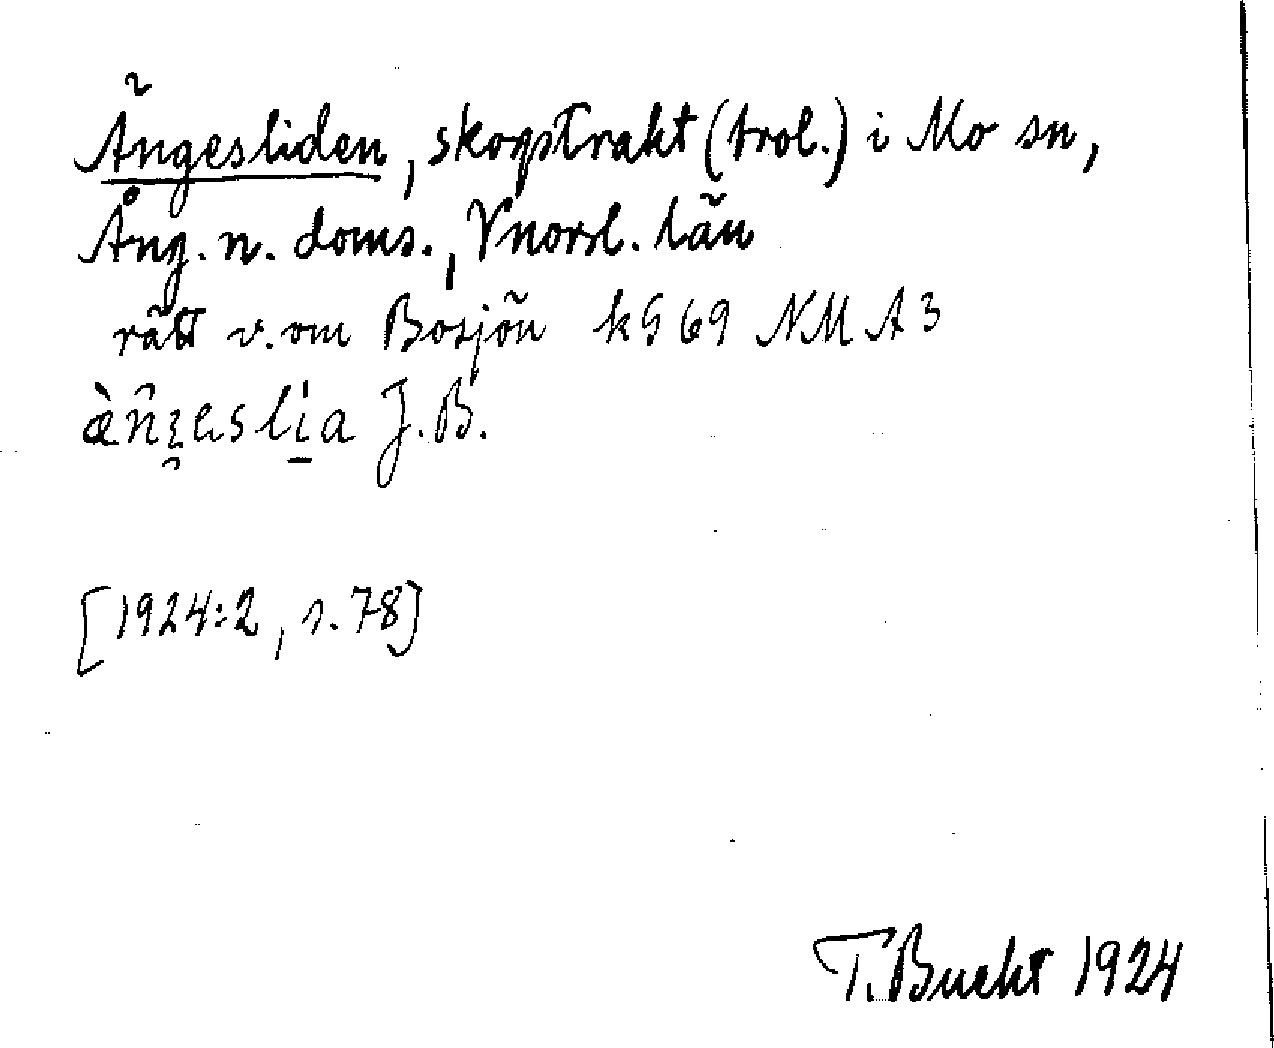 Ängesliden, skogstrakt (trol.) i Mo sn,
Ång. n. doms., Vnorrl. län
rätt v. om Bosjön kG 69 NM A3
àn̂ʒ̯eslị̄a J.B.
[1924:2, s. 78]
T. Bucht 1924